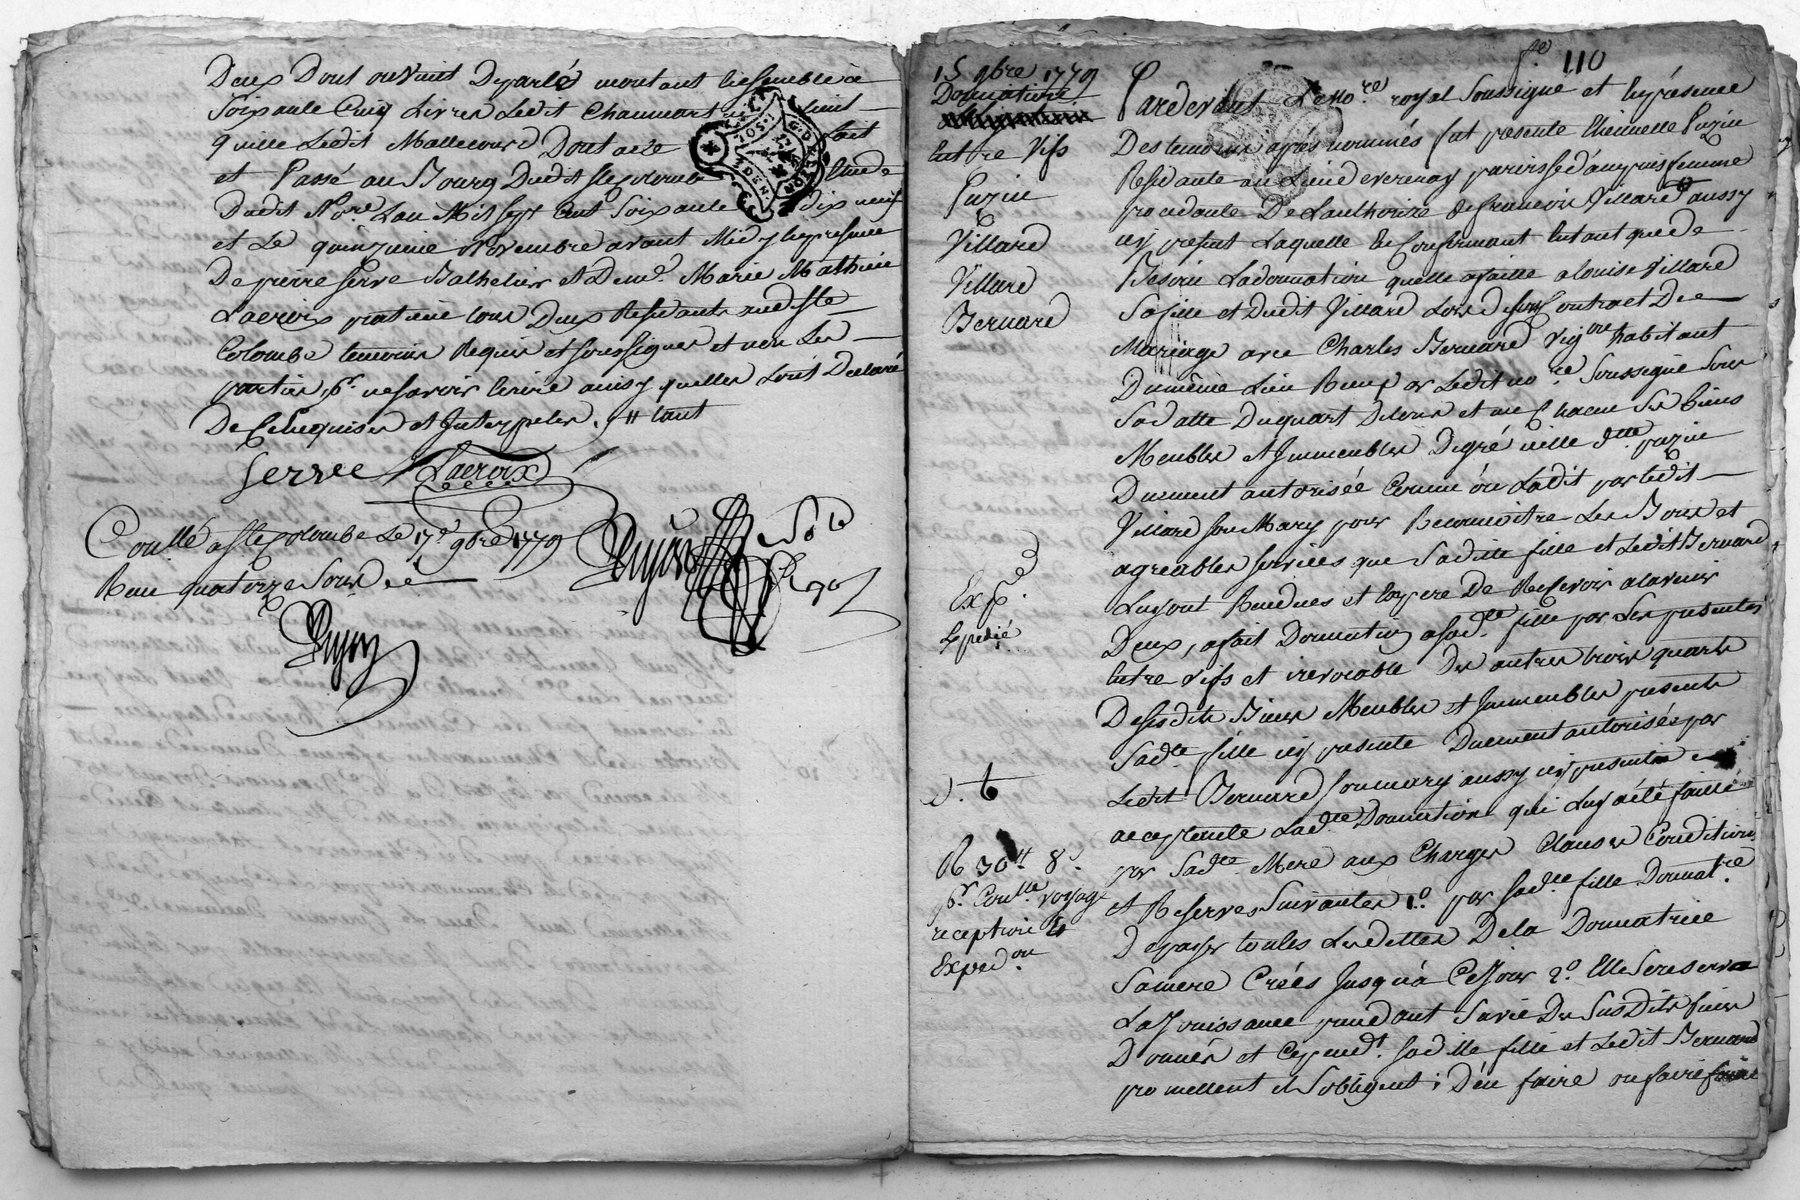 Deux Dont ouvrait Deparlé montant Ensemble a
Soixante Cinq Livres Ledit Chaumart
quille Ledit Mallecourd Dont acte fait
et Passé au Bourg Dudit Ste Colombe Etude
Dudit Nore. Lan Mil sept Cent Soixante Dix neuf
et Le quinzieme Novembre avant Midy En presence
De pierre Serve Bathelier et Deme. Marie Mathieu
Lacroix praticien tous Deux Residants audit Ste
Colombe temoins Requis et soussignes et non Les
parties pr. ne savoir Ecrire ainsy quelles L'ont Declaré
De Ce Enquises et Interpelés. tant
Serve Lacroix
Conllé a Ste Colombe Le 17e 9bre 1779
Reçu quatorze Sous
Dujon
Dujon
fo. 110
15 9bre 1779
Donnation
Entre Vifs
Puzin
Villard
Villard
Bernard
Expe.
Expedié
R 30# 8s.
pr. Conlle voyage
reception &
Expedon.
Pardevant Le nore. royal Soussigné et En presence
Des temoins après nommés fut presente Ennelle Puzin
Residante au Lieu de verenay parroisse d'ampuis femme
procedante De Lauthorité de francois Villard aussy
icy present Laquelle En Confirmant Entant que de
Besoin La donnation quelle a faitte a louise Villard
Sa fille et Dudit Villard Lors de son Contract De
Mariage avec Charles Bernard Vigon habitant
Du même Lieu Reçu par Ledit nore Soussigné Sous
Sa datte Du quart De tous et un Chacun Ses biens
Meubles et Immeubles De gré icelle dtte puzin
Duement autorisée Comme on La dit par Ledit
Villard Son Mary pour Reconnoitre Les Bons et
agreables services que Saditte fille et Ledit Bernard
Luy ont Rendues et Espere De Recevoir a lavenir
Deux, a fait Donnation a sade. fille par Les presentes
Entre vifs et irevocable Des autres trois quarts
De sesdits Biens Meubles et Immeubles presente
Sadte fille icy presente Duement autorisée par
Ledit Bernard Son mary aussy icy present
acceptente Ladte Donnation qui Luy a été faitte
par Sadte Mere aux Charges Clauses Conditions
et Reserves Suivantes 1o. par Sadtte fille Donatre.
De payer toutes Les dettes De la Donnatrice
Sa mere Créés Jusqu'a Ce Jour 2o. Elle Se reserve
La Jouissance pendant Sa vie Des Susdits biens
Donnés et Cependt. Saditte fille et Ledit Bernard
promettent et S'obligent D'en faire ou faire faire